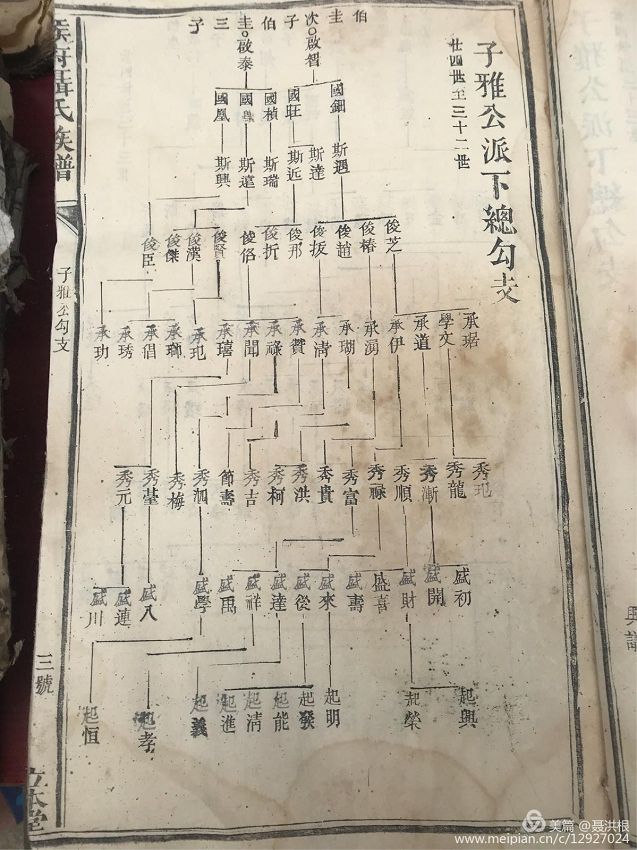 子雅公派下總勾支
廿四世至三十二世
伯
圭
次○啟智
子
伯
圭○啟泰
三
子
國鈿
國旺
國楨
國
國鳳
斯遇
斯達
斯近
斯瑞
斯遠
斯興
俊芝
俊椿
俊趙
俊扳
俊邢
俊折
俊侶
俊賢
俊漢
俊傑
俊臣
承琚
學文
承道
承伊
承湧
承瑚
承清
承贊
承祿
承聞
承璔
承玘
承瑯
承倡
承琇
承玏
秀玘
秀龍
秀漸
秀順
秀祿
秀富
秀貴
秀洪
秀柯
秀吉
節壽
秀泗
秀梅
秀莖
秀元
盛初
盛開
盛財
盛喜
盛壽
盛來
盛從
盛達
盛祥
盛禹
盛學
盛八
盛連
盛川
起興
起榮
起明
起發
起能
起清
起進
起義
起孝
起恒
聶氏族譜
子雅公勾支
三號
立本堂
美篇 @聂洪根
www.meipian.cn/c/12927024